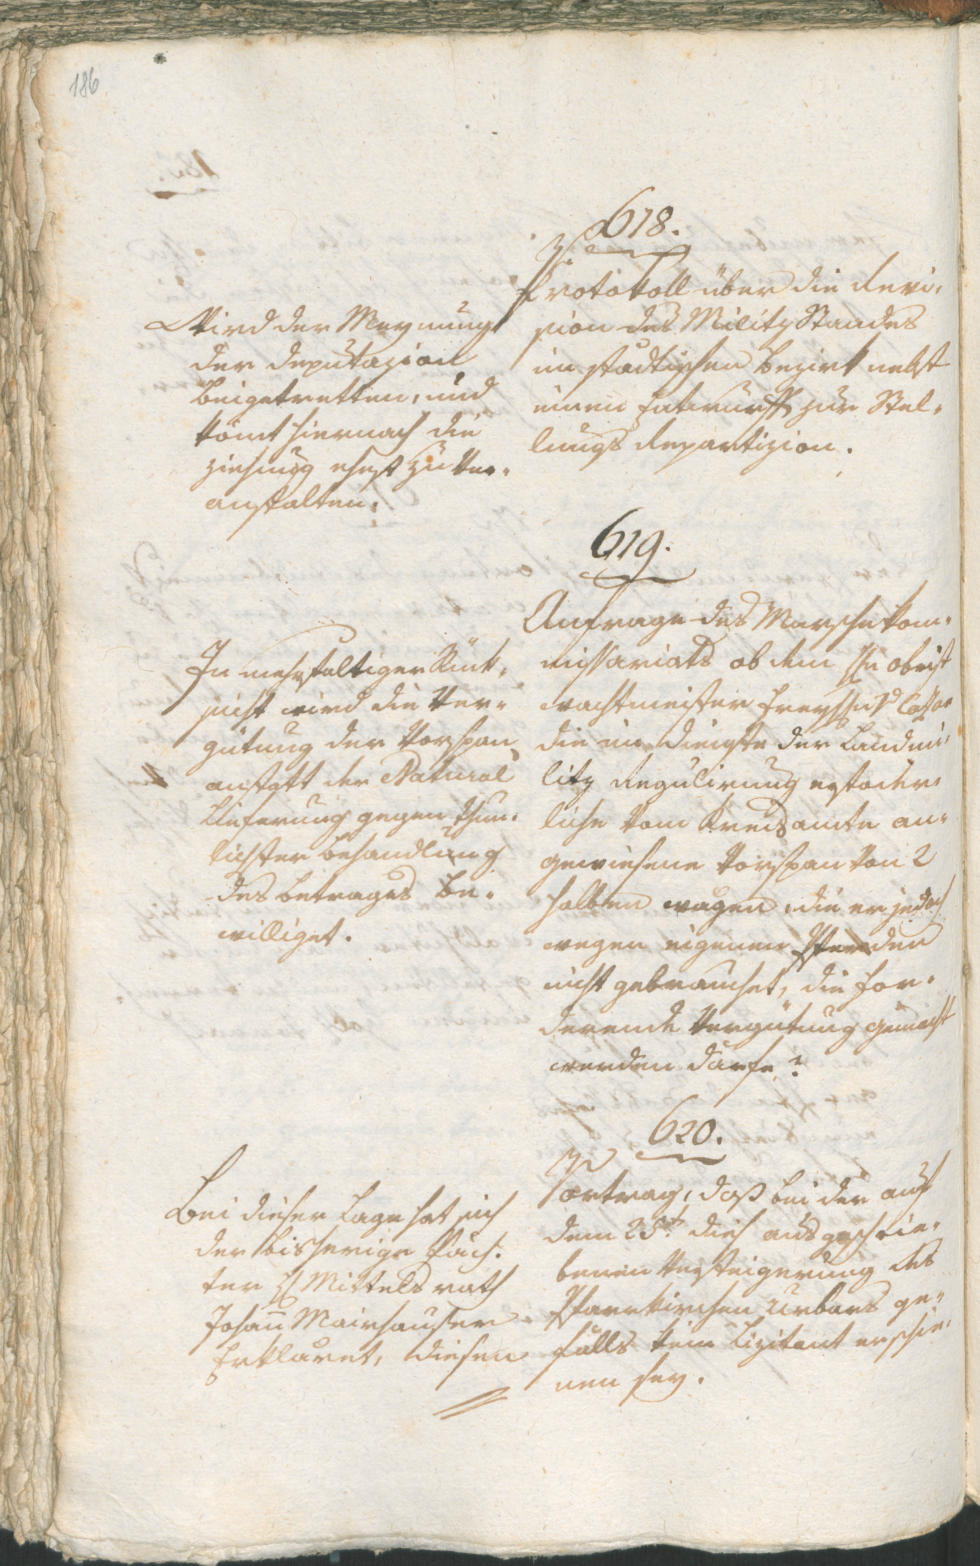 186
618.
Protokoll über die Revi-
sion des Militz Standes
im städtischen Bezirk nebst
einem Entwurff zur Stel-
lungs Repartizion.
Wird der Meynung
der Deputazion
beigetretten, und
kömt hiernach die
Ziehung ehest zu ver-
anstalten.
619.
Anfrage des Marschekom-
missariats ob dem H Obrist
wachtmeister Freyh v
die im Dienste der Landmi-
litz Regulirung
liche vom Kreisamte an-
gewiesene Vorspan von 2
halben wagen, die er jedoch
wegen eigenen Pferden
nicht gebrauchet, die for-
derende Vergütung gemacht
werden darfe?
In mehrfaltiger Rük-
sicht wird die Ver-
gütung der Vorspan
anstatt der Natural
Lieferung gegen thun-
lichster Behandlung
des Betrages be-
williget.
620.
Vortrag, daß bei der auf
dem 25t dieß ausgeschrie-
benen Versteigerung des
Pfarrkirchen Urbars ge-
falls kein Lizitant erschie-
nen sey.
Bei dieser Lage hat sich
der bisherige Päch-
ter H Mittelsrath
Johan Mairhauser
Erklaret, diesen